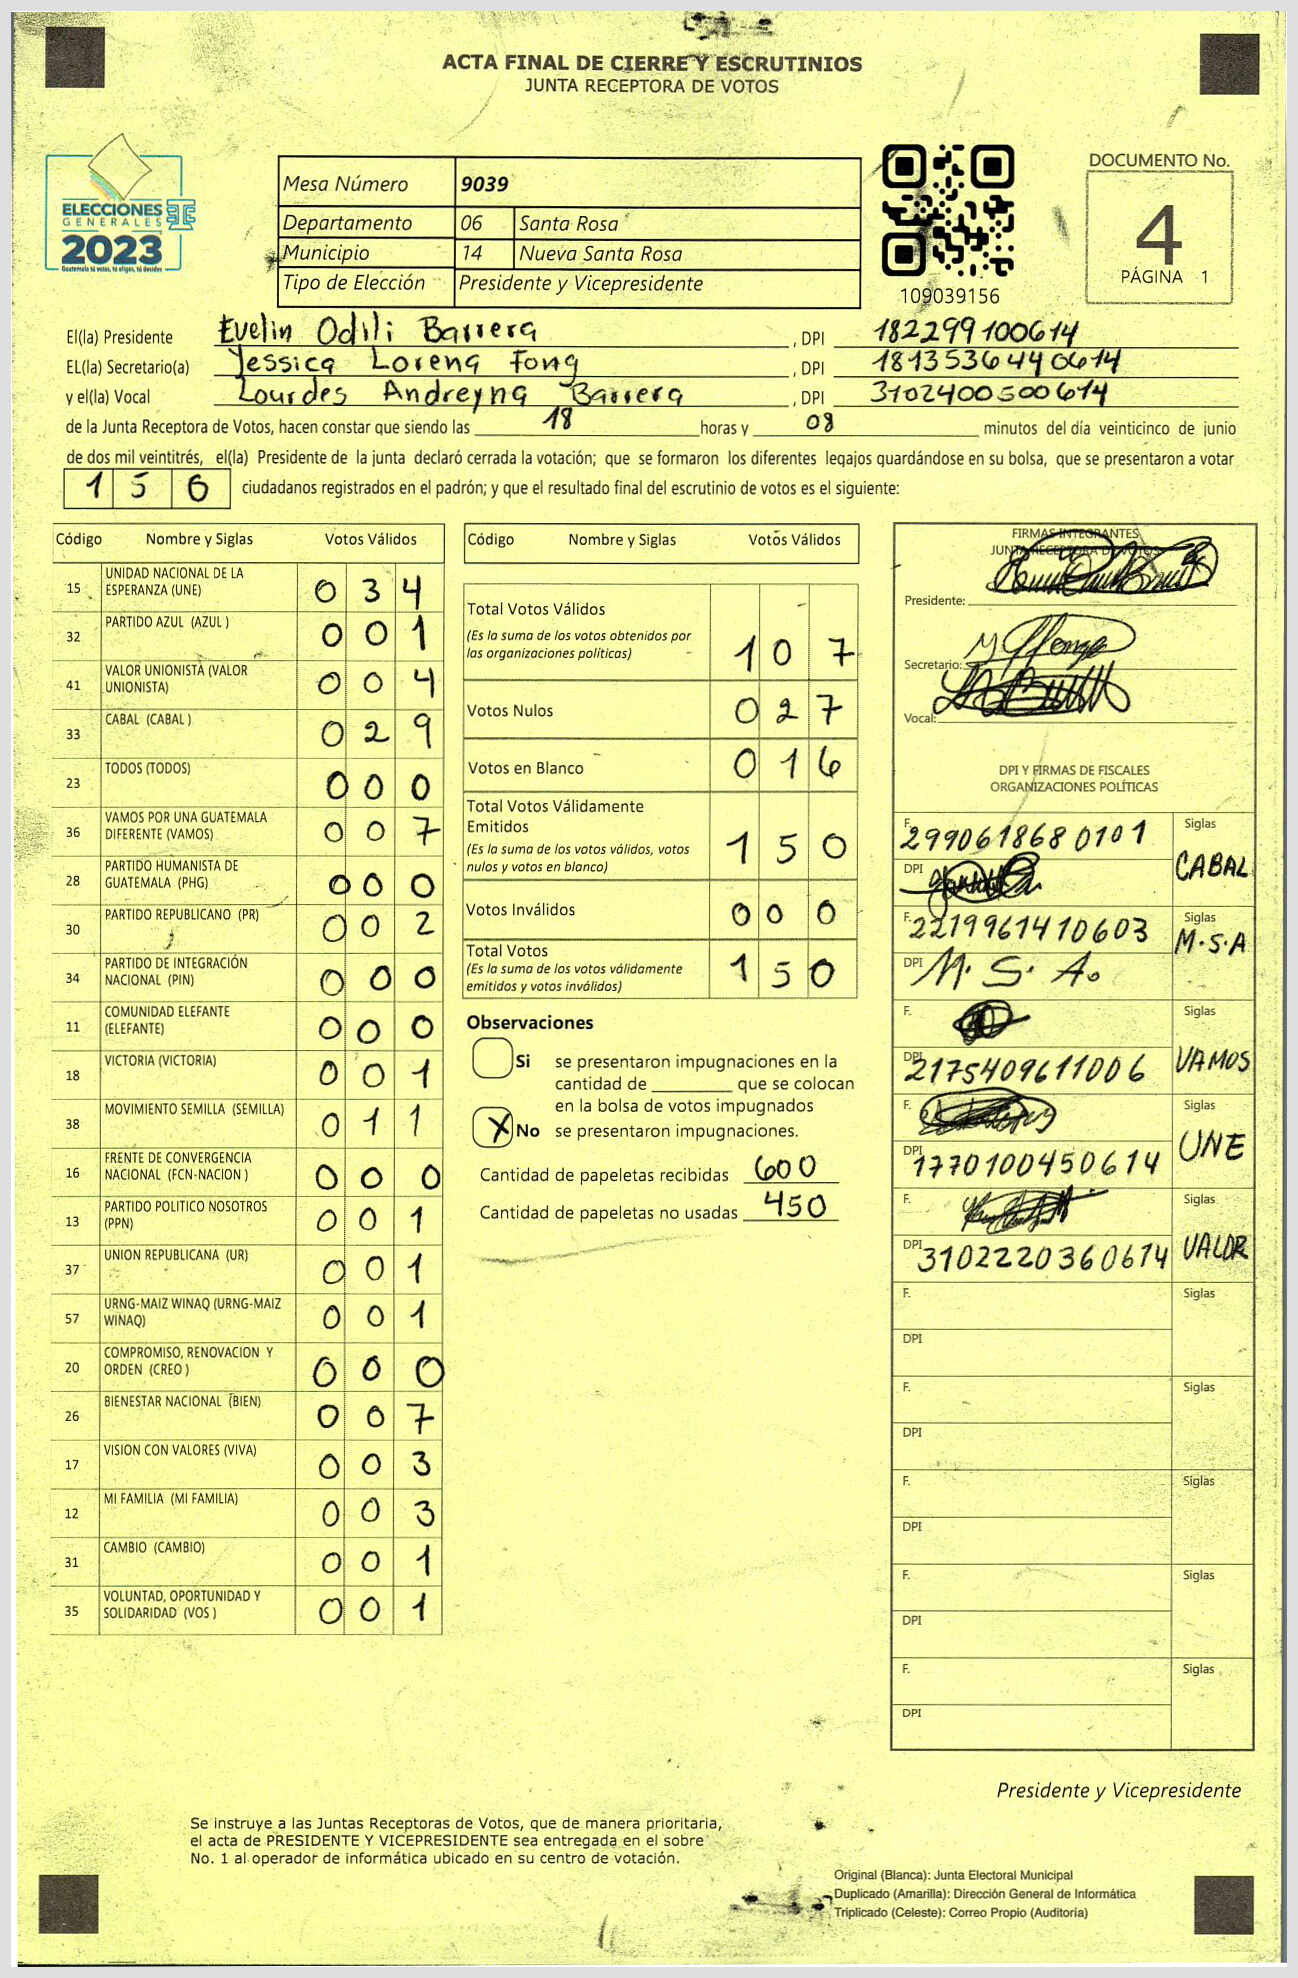 ACTA FINAL DE CIERRE Y ESCRUTINIOS
JUNTA RECEPTORA DE VOTOS
ELECCIONES
GENERALES
2023
Guatemala tú votas, tú eliges, tú decides
Mesa Número 9039
Departamento 06 Santa Rosa
Municipio 14 Nueva Santa Rosa
Tipo de Elección Presidente y Vicepresidente
109039156
DOCUMENTO No.
4
PÁGINA 1
El(la) Presidente Evelin Odili Barrera , DPI 182299100614
EL(la) Secretario(a) Yessica Lorena Fong , DPI 1813536440614
y el(la) Vocal Lourdes Andreyna Barrera , DPI 3102400500614
de la Junta Receptora de Votos, hacen constar que siendo las 18 horas y 08 minutos del día veinticinco de junio
de dos mil veintitrés, el(la) Presidente de la junta declaró cerrada la votación; que se formaron los diferentes legajos quardándose en su bolsa, que se presentaron a votar
156 ciudadanos registrados en el padrón; y que el resultado final del escrutinio de votos es el siguiente:
Código Nombre y Siglas Votos Válidos
15 UNIDAD NACIONAL DE LA ESPERANZA (UNE) 0 3 4
32 PARTIDO AZUL (AZUL ) 0 0 1
41 VALOR UNIONISTA (VALOR UNIONISTA) 0 0 4
33 CABAL (CABAL ) 0 2 9
23 TODOS (TODOS) 0 0 0
36 VAMOS POR UNA GUATEMALA DIFERENTE (VAMOS) 0 0 7
28 PARTIDO HUMANISTA DE GUATEMALA (PHG) 0 0 0
30 PARTIDO REPUBLICANO (PR) 0 0 2
34 PARTIDO DE INTEGRACIÓN NACIONAL (PIN) 0 0 0
11 COMUNIDAD ELEFANTE (ELEFANTE) 0 0 0
18 VICTORIA (VICTORIA) 0 0 1
38 MOVIMIENTO SEMILLA (SEMILLA) 0 1 1
16 FRENTE DE CONVERGENCIA NACIONAL (FCN-NACION ) 0 0 0
13 PARTIDO POLITICO NOSOTROS (PPN) 0 0 1
37 UNION REPUBLICANA (UR) 0 0 1
57 URNG-MAIZ WINAQ (URNG-MAIZ WINAQ) 0 0 1
20 COMPROMISO, RENOVACION Y ORDEN (CREO ) 0 0 0
26 BIENESTAR NACIONAL (BIEN) 0 0 7
17 VISION CON VALORES (VIVA) 0 0 3
12 MI FAMILIA (MI FAMILIA) 0 0 3
31 CAMBIO (CAMBIO) 0 0 1
35 VOLUNTAD, OPORTUNIDAD Y SOLIDARIDAD (VOS ) 0 0 1
Código Nombre y Siglas Votos Válidos
Total Votos Válidos 1 0 7
(Es la suma de los votos obtenidos por
las organizaciones políticas)
Votos Nulos 0 2 7
Votos en Blanco 0 1 6
Total Votos Válidamente
Emitidos 1 5 0
(Es la suma de los votos válidos, votos
nulos y votos en blanco)
Votos Inválidos 0 0 0
Total Votos 1 5 0
(Es la suma de los votos válidamente
emitidos y votos inválidos)
Observaciones
Si se presentaron impugnaciones en la
cantidad de ________ que se colocan
en la bolsa de votos impugnados
X No se presentaron impugnaciones.
Cantidad de papeletas recibidas 600
Cantidad de papeletas no usadas 450
FIRMAS INTEGRANTES
JUNTA RECEPTORA DE VOTOS
Presidente:
Secretario:
Vocal:
DPI Y FIRMAS DE FISCALES
ORGANIZACIONES POLÍTICAS
F. 2990618680101 Siglas
DPI CABAL
F. 2219961410603 Siglas
DPI M.S.A. M.S.A
F. Siglas
DPI 2175409611006 VAMOS
F. Siglas
DPI 1770100450614 UNE
F. Siglas
DPI 3102220360614 VALOR
F. Siglas
DPI
F. Siglas
DPI
F. Siglas
DPI
F. Siglas
DPI
F. Siglas
DPI
Presidente y Vicepresidente
Se instruye a las Juntas Receptoras de Votos, que de manera prioritaria,
el acta de PRESIDENTE Y VICEPRESIDENTE sea entregada en el sobre
No. 1 al operador de informática ubicado en su centro de votación.
Original (Blanca): Junta Electoral Municipal
Duplicado (Amarilla): Dirección General de Informática
Triplicado (Celeste): Correo Propio (Auditoría)